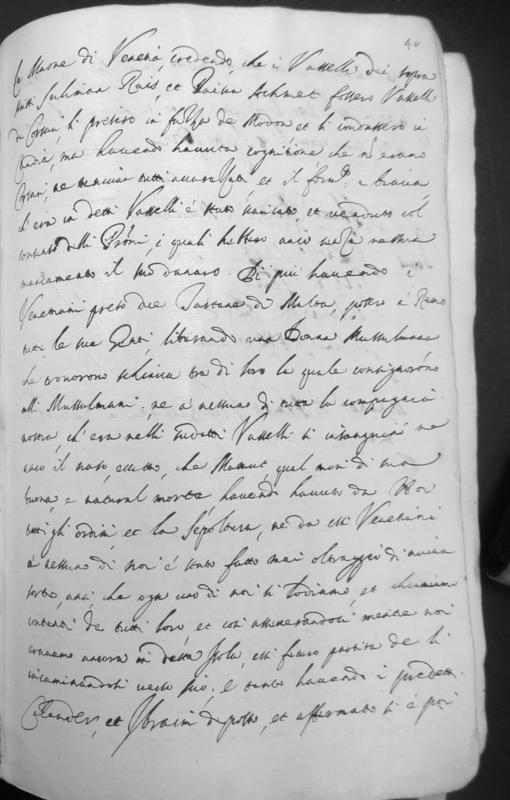 40
Le Naone di Venetia, credendo, che i Vasselli dei sopra
detti Suliman Rais, et Rais Achmet fossero Vasselli
di Corsari, li presero in faccia de Modon et li condussero in
Candia, ma havendo havuta cognitione che non erano
Corsari, ne et il form. e biava
ch'era in detti Vasselli è stato scaricato, et venduto col
contanto delli Pròni, i quali hebbero anco senza nessun
mancamento il suo danaro. Di più havendo i
Venetiani preso due Tartane di Malta, posero a Remo
tutte le sue Genti, liberando una Donna Mussulmana
che trovorono schiava tra di loro la quale consignorono
alli Mussulmani, ne a nessuno di tutta la compagnia
nostra, ch'era nelli sudetti Vasselli si insanguinò ne
anco il naso, eccetto, che Mamut, qual morì di sua
buona, e natural morte, havendo havuto da Noi
tutti gli ordini, et la sepoltura, ne da essi Venetiani
à nessuno di noi è stato fatto mai oltraggio di niuna
sorte, anzi, che ogn' uno di noi si lodiamo, et chiamiamo
contenti de tutti loro, et così mentre noi
eravamo ancora in detta Isola, essi furno partiti de lì
incaminandosi verso Sio; e tanto havendo i predetti
Calender, et Ibraim deposto, et affermato si è poi